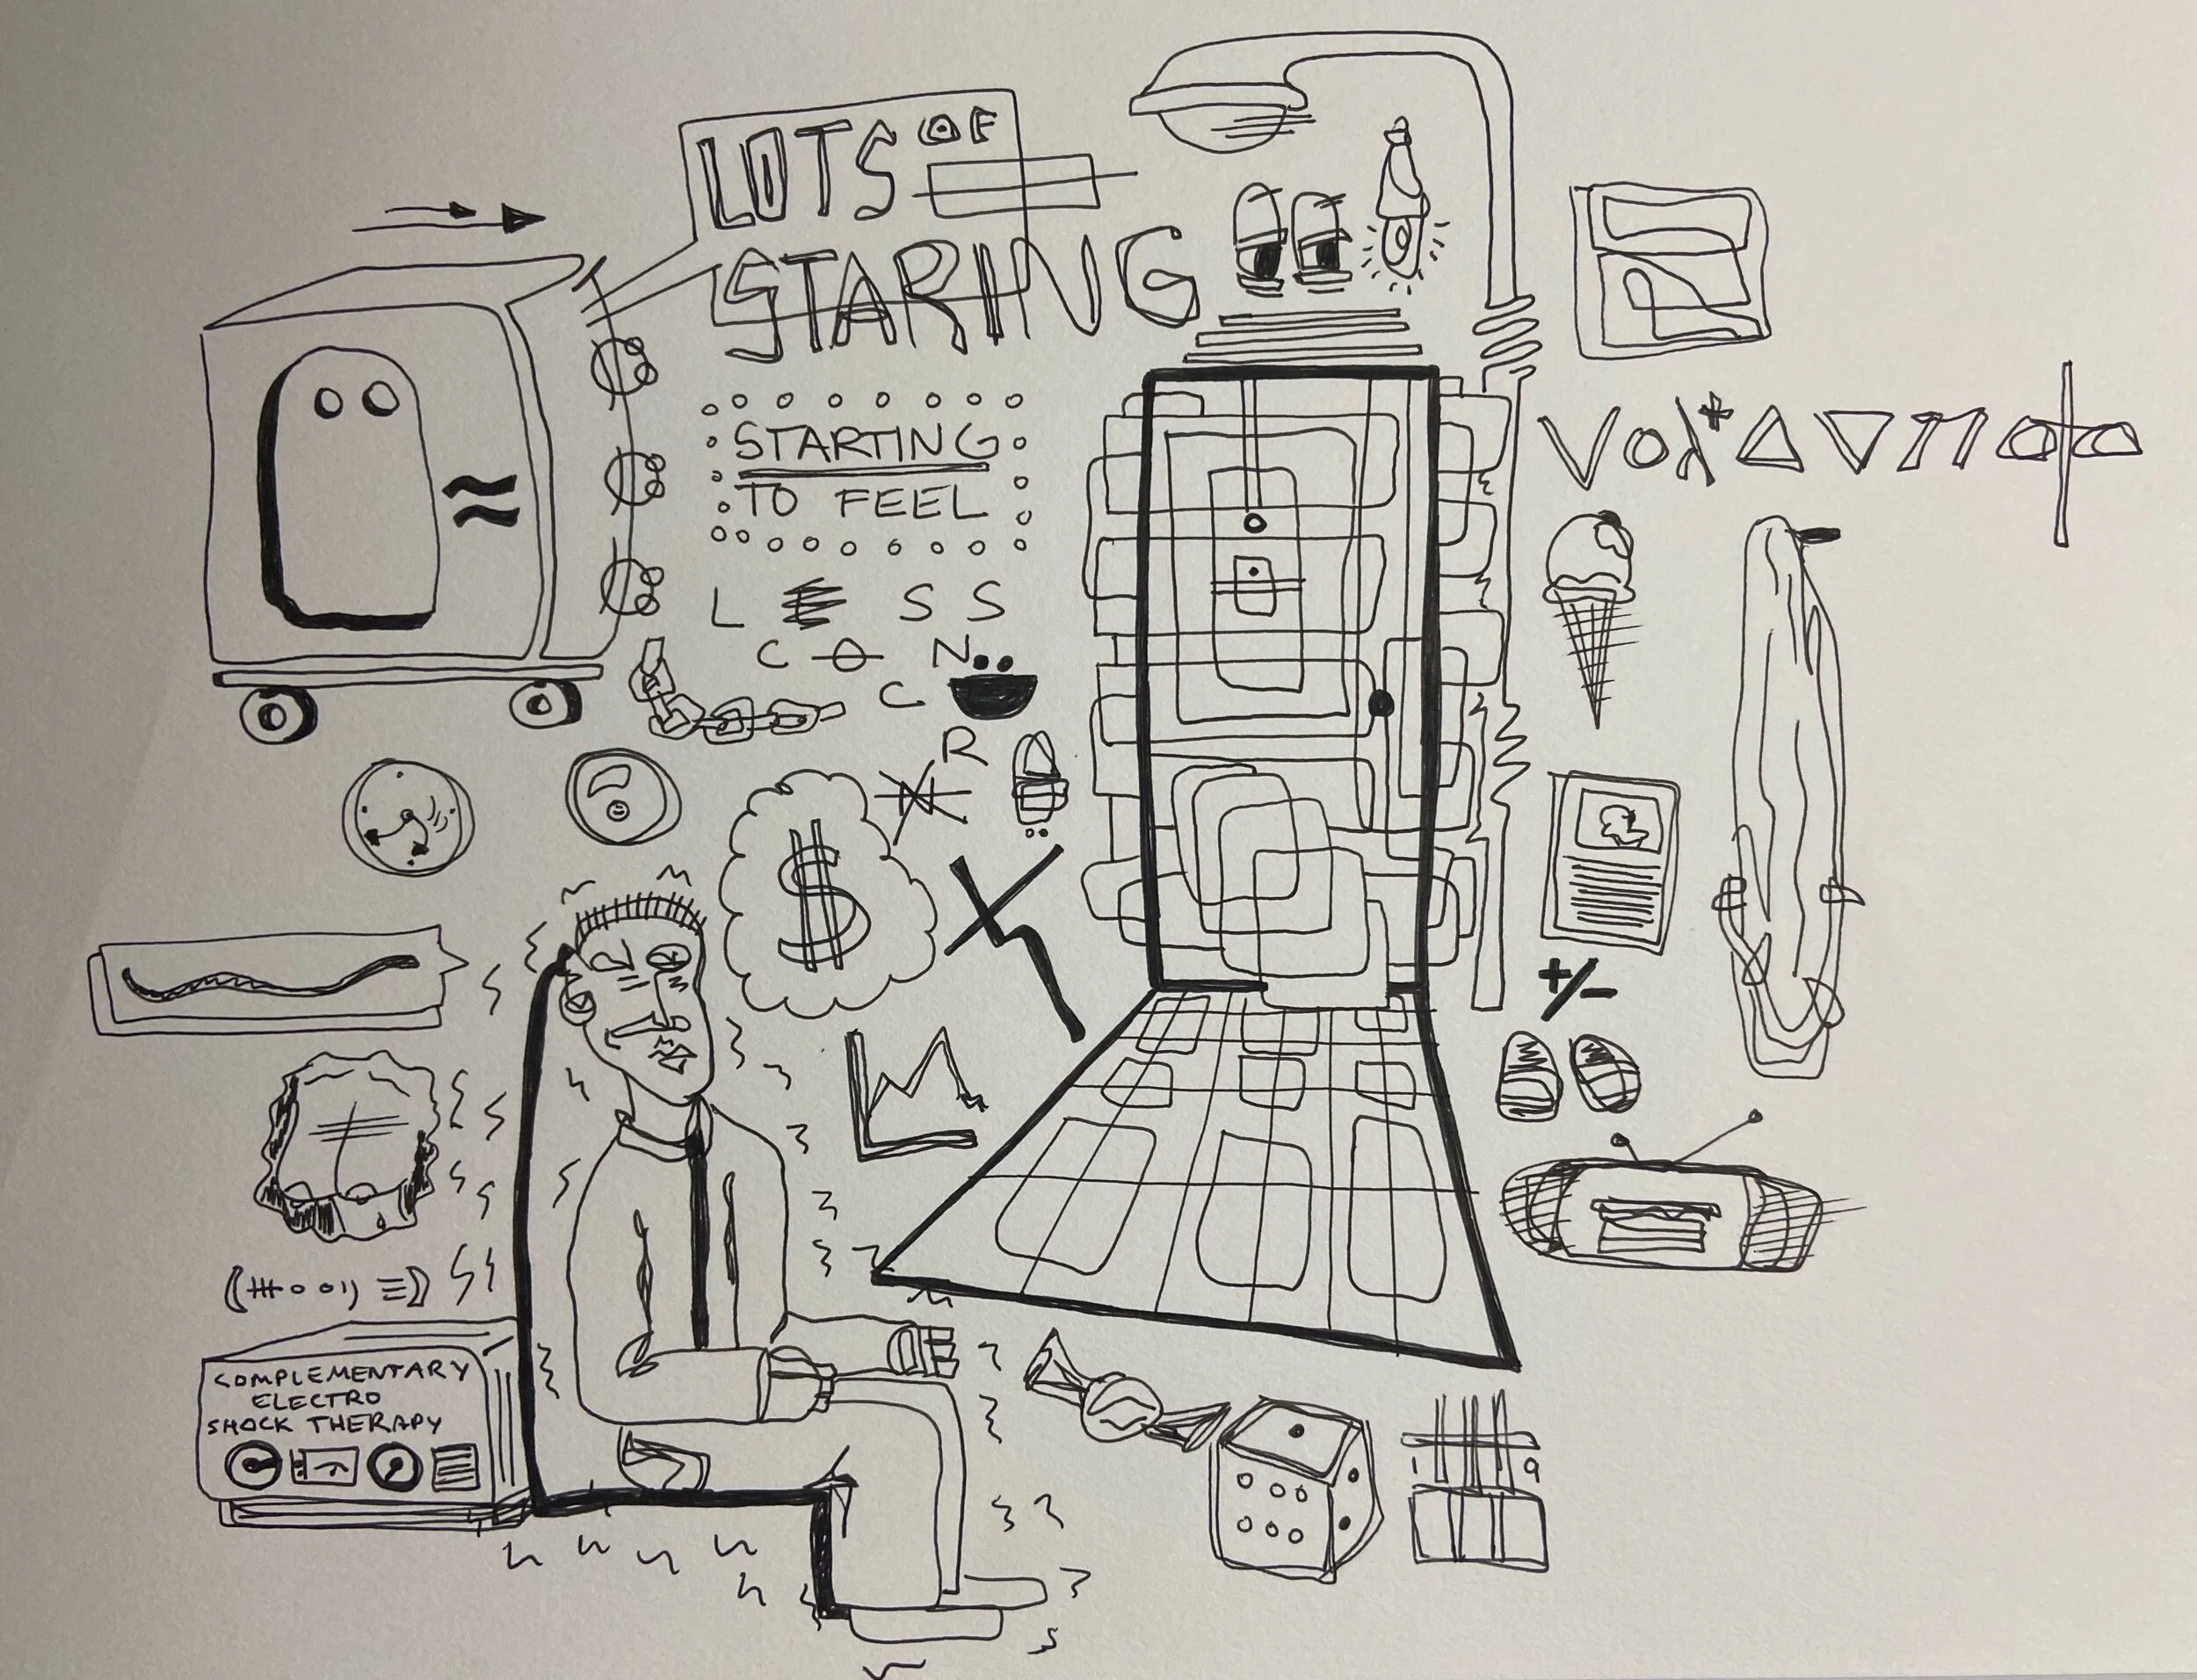 LOTS OF
STARING
STARTING
TO FEEL
L E S S
C O N
C
R
$
+/-
COMPLEMENTARY
ELECTRO
SHOCK THERAPY
1 9